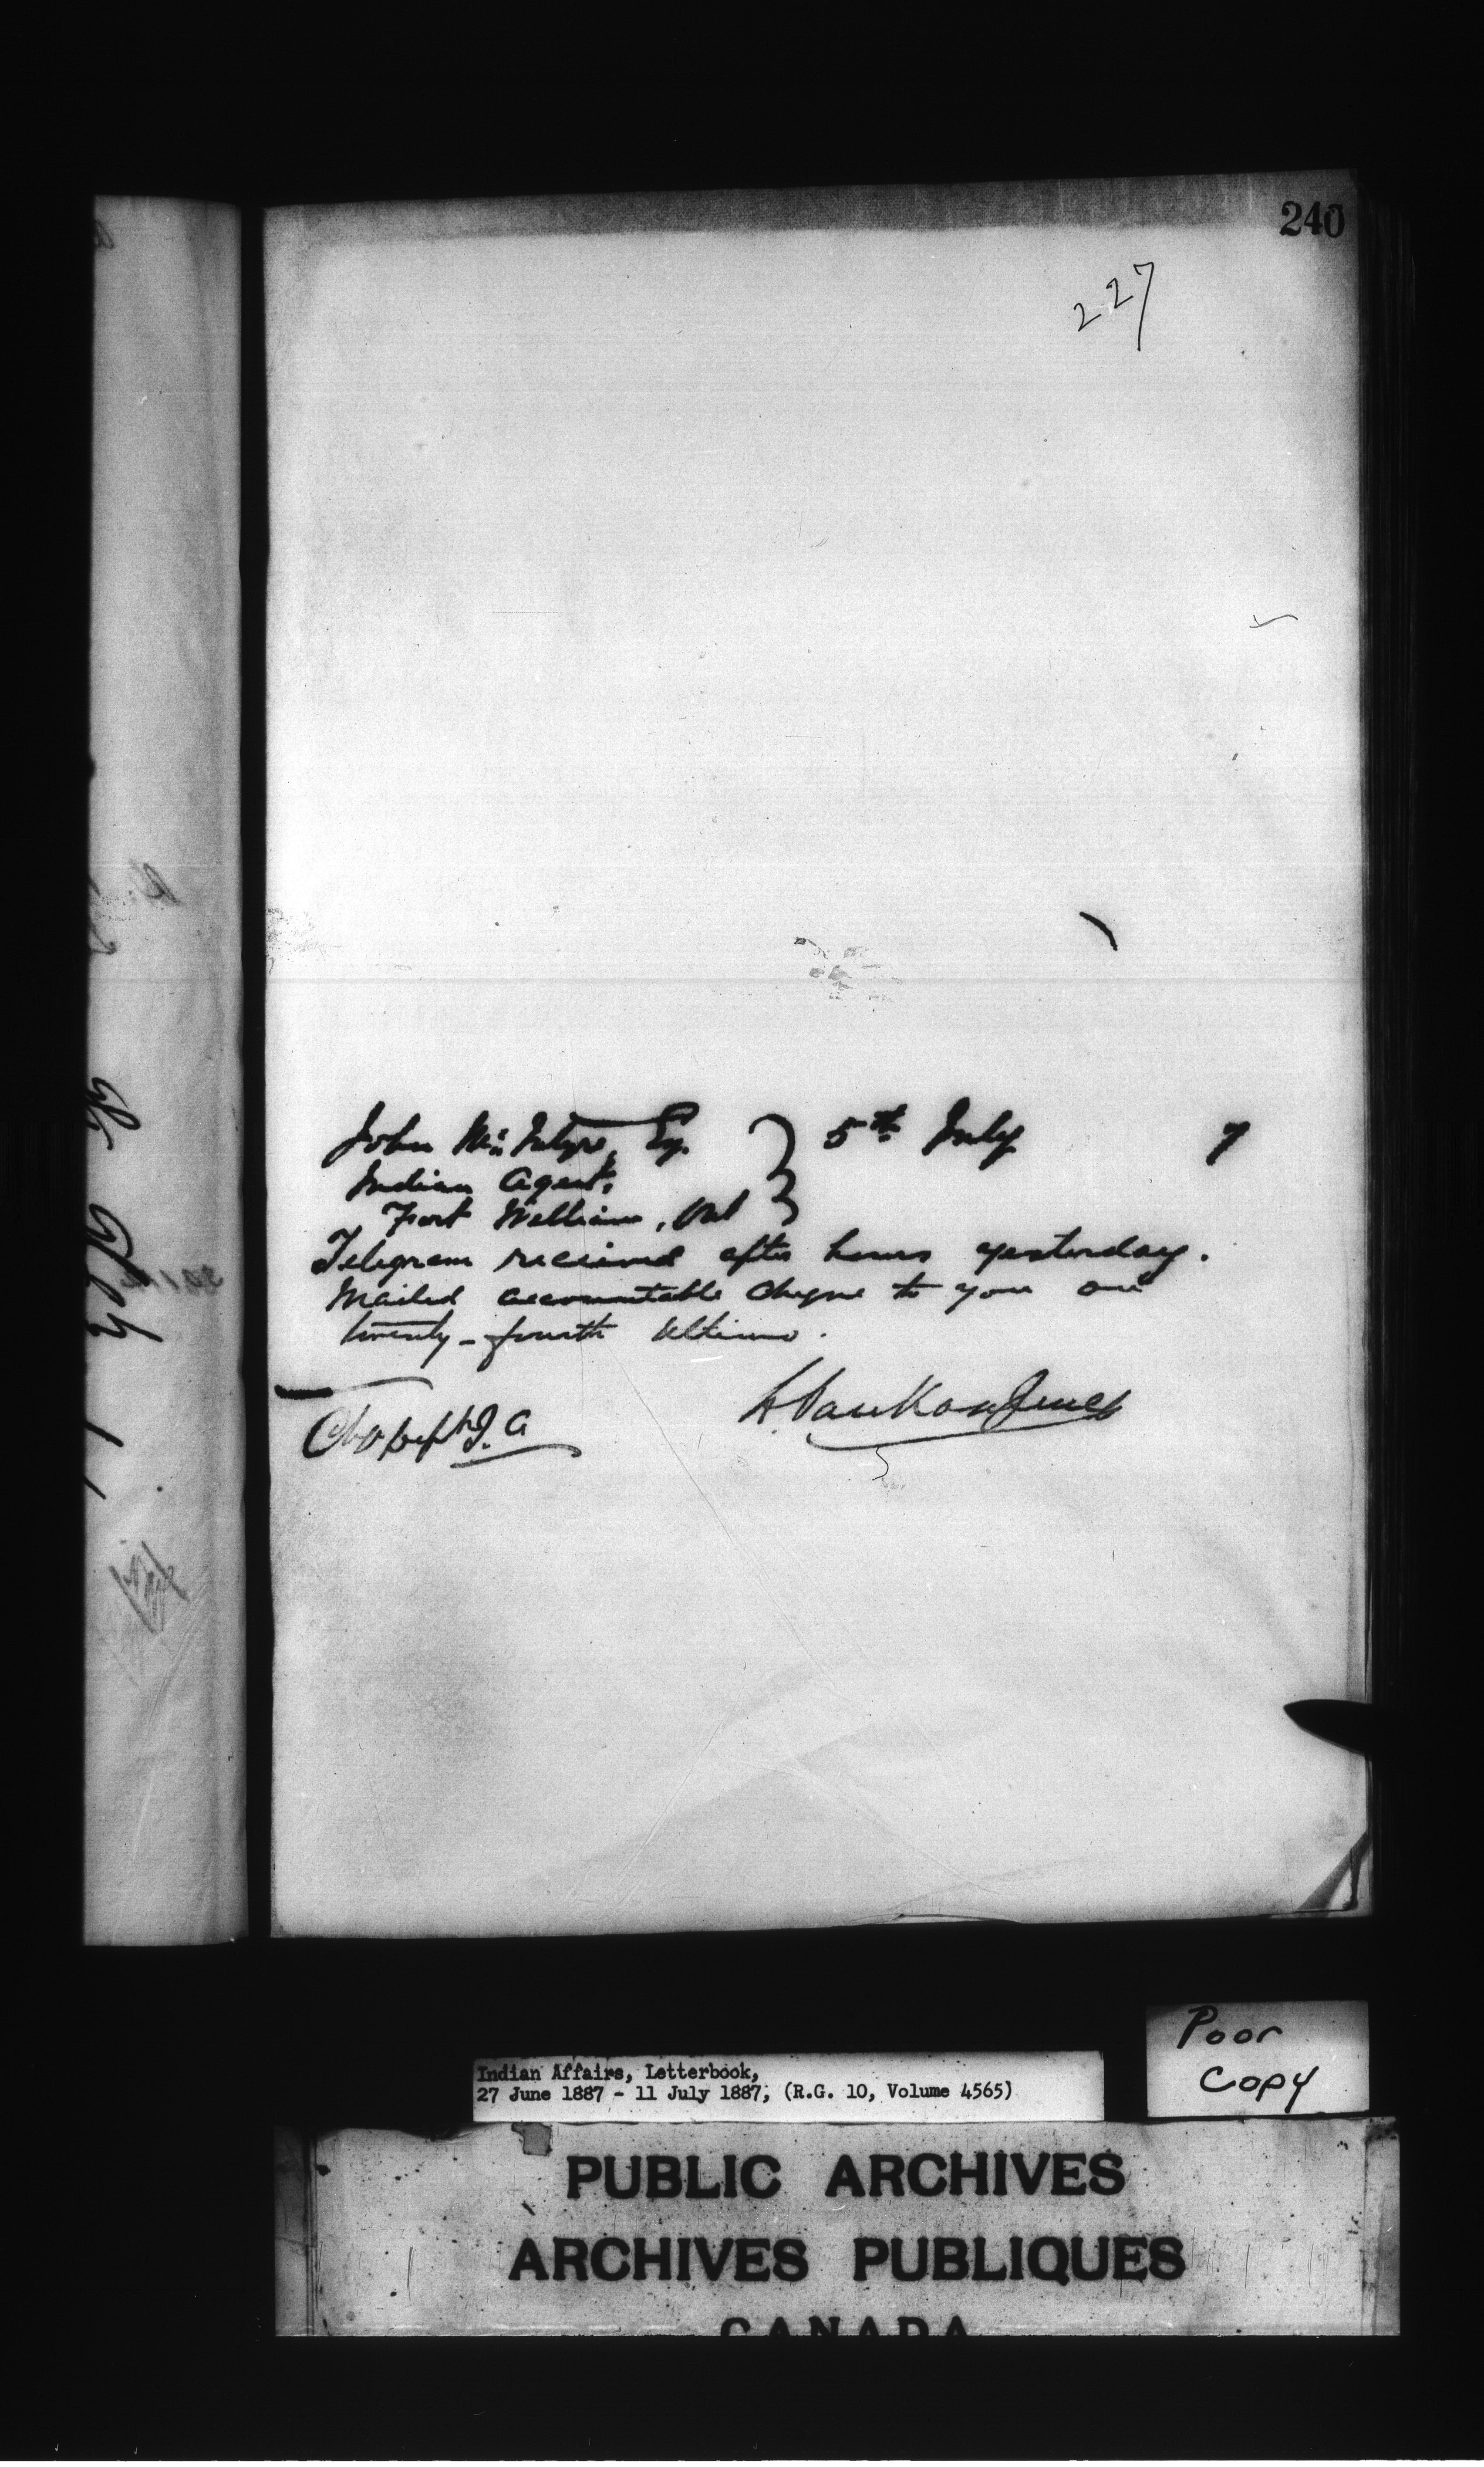 240
227
John McIntyre, Esq. } 5th July 7
Indian Agent,
Fort William, Ont
Telegram received after hours yesterday.
Mailed accountable cheque to you on
twenty-fourth ultimo.
L. VanKoughnet
Chg Dept I. A
Poor
Copy
Indian Affairs, Letterbook,
27 June 1887 - 11 July 1887, (R.G. 10, Volume 4565)
PUBLIC ARCHIVES
ARCHIVES PUBLIQUES
CANADA